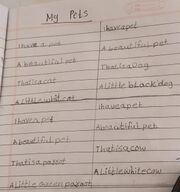 My Pets
I have a pet
A beautiful pet
That is a cat
A Little white cat
I have a pet
A beautiful pet
That is a parrot
A Little green parrot
I have a pet
A beautiful pet
That is a Dog
A little black dog
I have a pet
A beautiful pet
That is a cow
A Little white cow